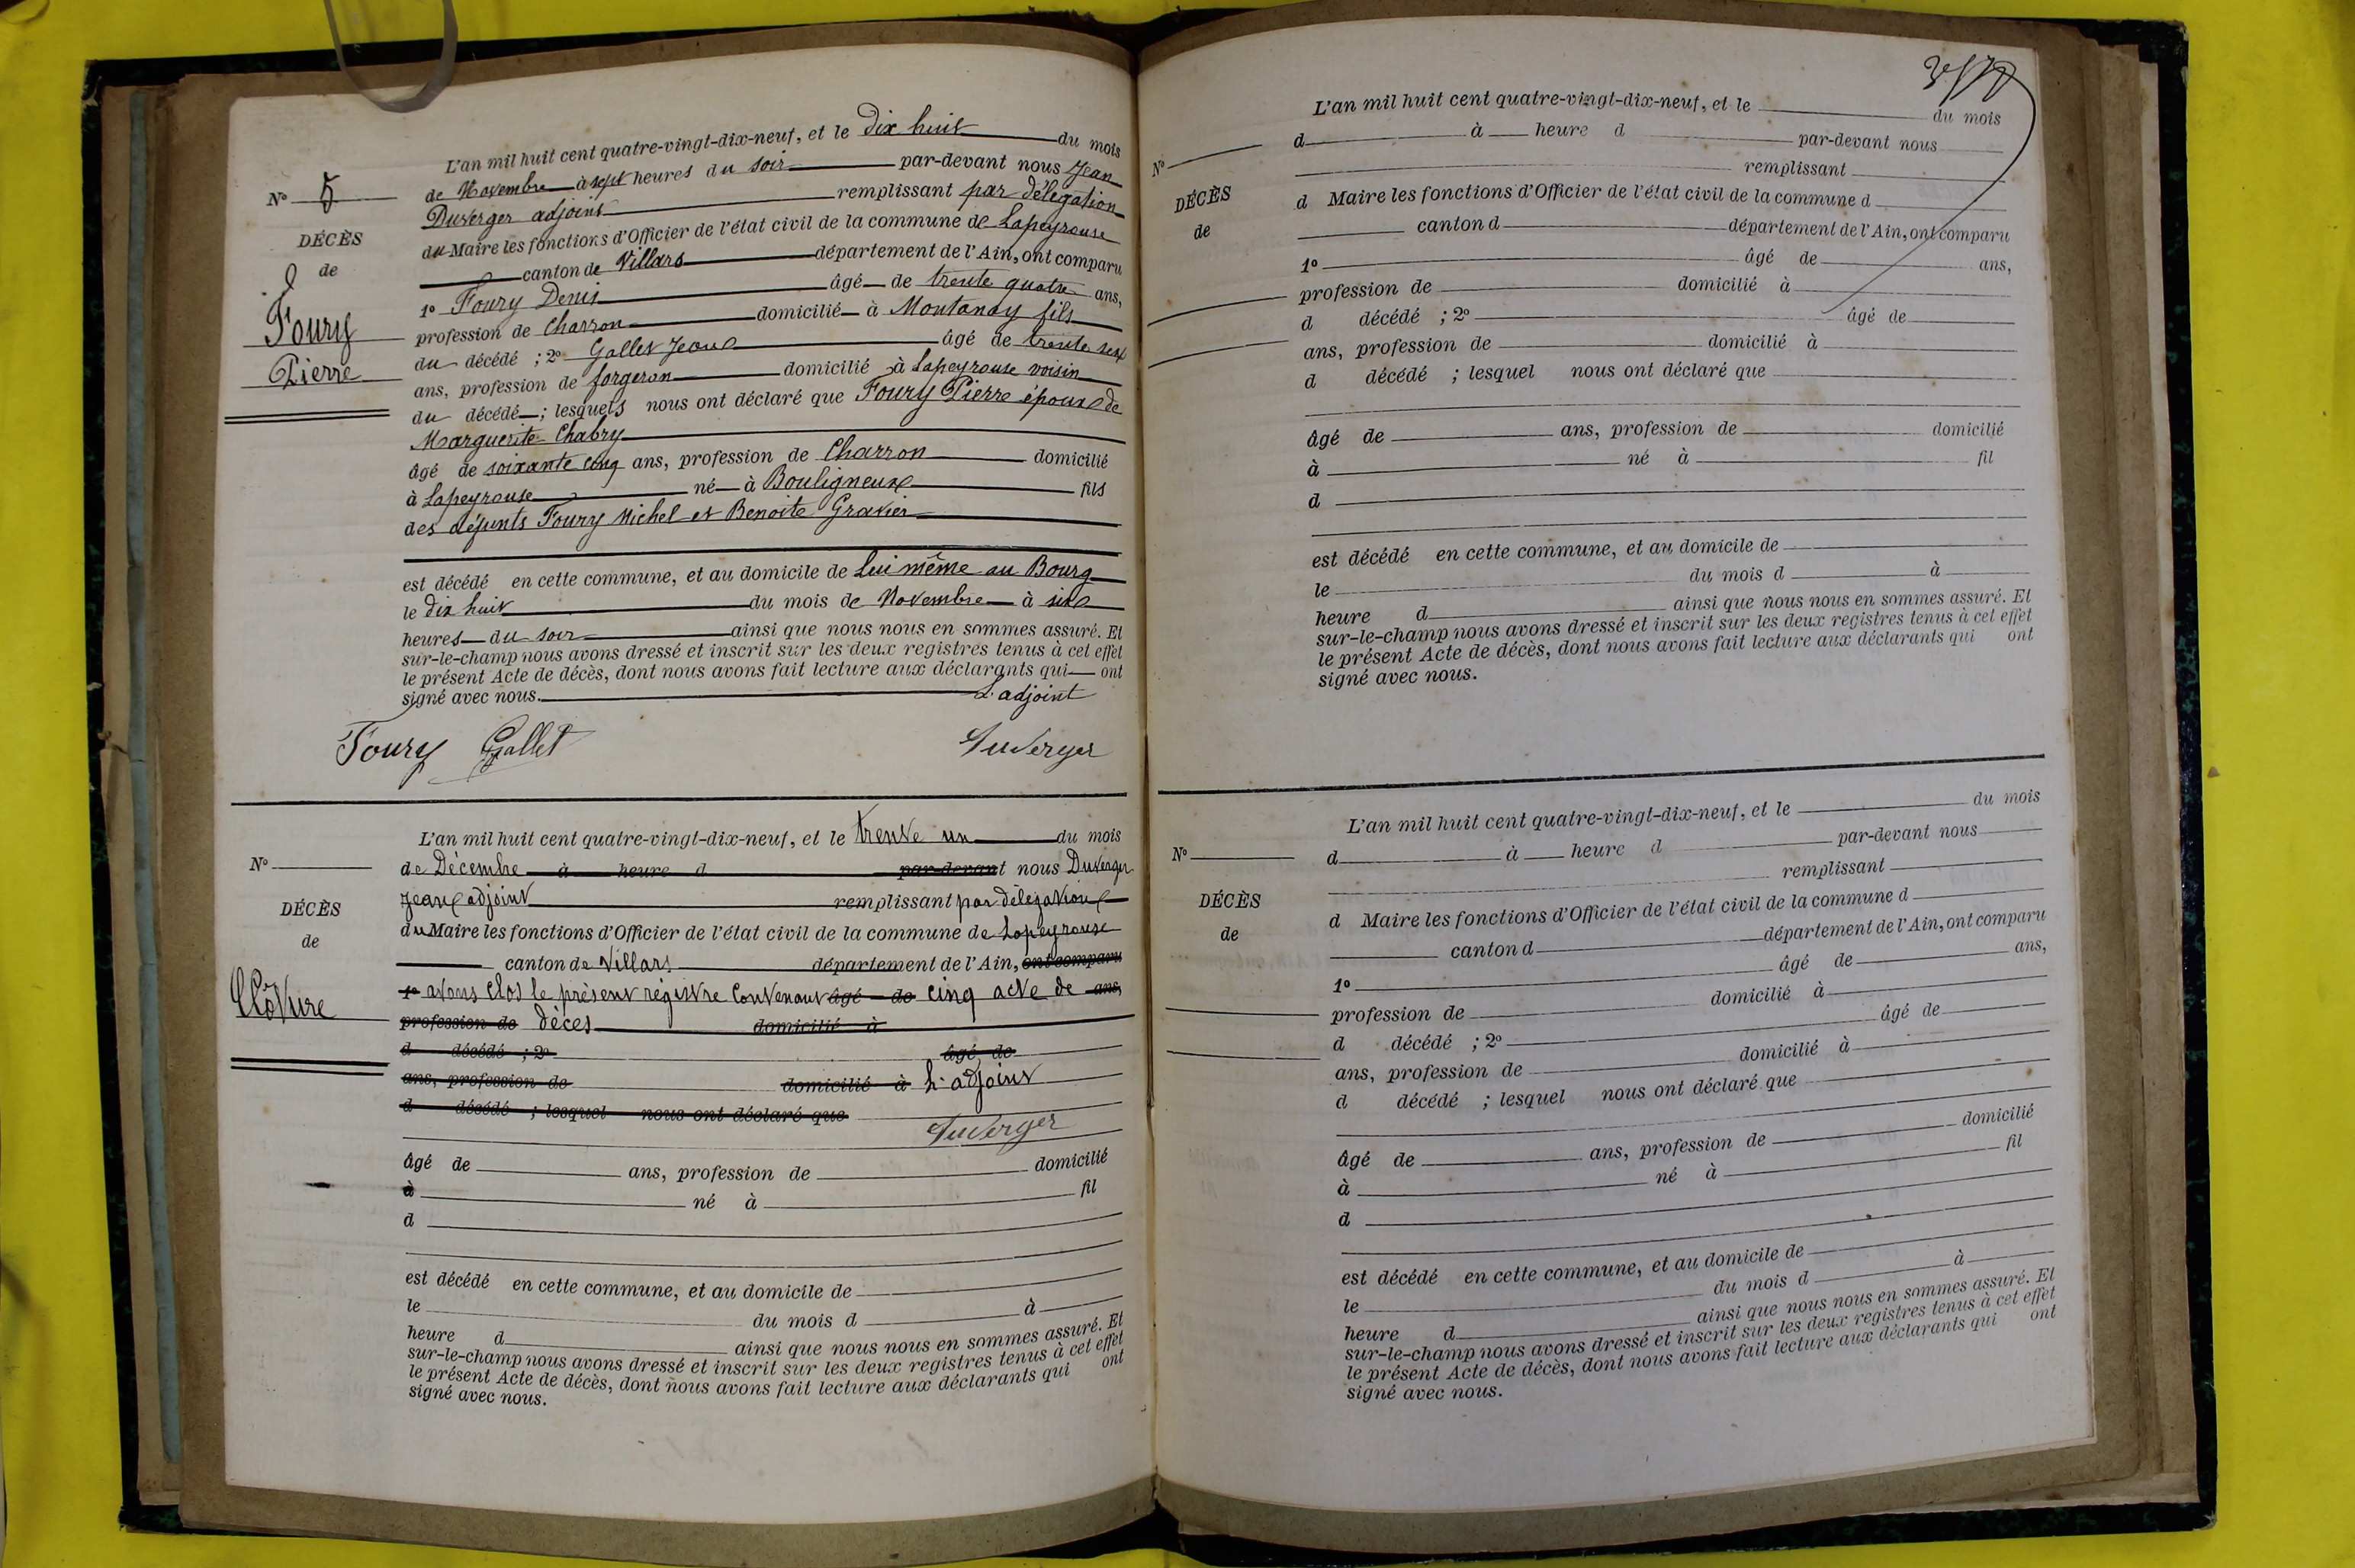 L'an mil huit cent quatre-vingt-dix-neuf, et le Dix huit du mois
de Novembre à sept heures du soir par-devant nous Jean
Duverger adjoint remplissant par délégation
du Maire les fonctions d'Officier de l'état civil de la commune de Lapeyrouse
canton de Villars département de l'Ain, ont comparu
1º Foury Denis âgé de trente quatre ans,
profession de Charron domicilié à Montanay fils
du décédé ; 2º Gallet Jean âgé de trente
ans, profession de forgeron domicilié à Lapeyrouse voisin
du décédé ; lesquels nous ont déclaré que Foury Pierre époux de
Marguerite Chabry
âgé de soixante cinq ans, profession de Charron domicilié
à Lapeyrouse né à Bouligneux fils
des défunts Foury Michel et Benoite Gravier
est décédé en cette commune, et au domicile de Lui même au Bourg
le dix huit du mois de Novembre à six
heures du soir ainsi que nous nous en sommes assuré. Et
sur-le-champ nous avons dressé et inscrit sur les deux registres tenus à cet effet
le présent Acte de décès, dont nous avons fait lecture aux déclarants qui ont
signé avec nous. L'adjoint
Foury Gallet Duverger
Nº 5
DÉCÈS
de
Foury
Pierre
L'an mil huit cent quatre-vingt-dix-neuf, et le trente un du mois
de Décembre à heure d par-devant nous Duverger
Jean adjoint remplissant par délégation
du Maire les fonctions d'Officier de l'état civil de la commune de Lapeyrouse
canton de Villars département de l'Ain, ont comparu
1º avons Clos le présent régistre Contenant âgé de cinq acte de ans,
profession de décès domicilié à
d décédé ; 2º âgé de
ans, profession de domicilié à L'adjoint
d décédé ; lesquel nous ont déclaré que
Duverger
âgé de ans, profession de domicilié
à né à fil
d
est décédé en cette commune, et au domicile de
le du mois d à
heure d ainsi que nous nous en sommes assuré. Et
sur-le-champ nous avons dressé et inscrit sur les deux registres tenus à cet effet
le présent Acte de décès, dont nous avons fait lecture aux déclarants qui ont
signé avec nous.
Nº
DÉCÈS
de
Clôture
L'an mil huit cent quatre-vingt-dix-neuf, et le du mois
d à heure d par-devant nous
remplissant
d Maire les fonctions d'Officier de l'état civil de la commune d
canton d département de l'Ain, ont comparu
1º âgé de ans,
profession de domicilié à
d décédé ; 2º âgé de
ans, profession de domicilié à
d décédé ; lesquel nous ont déclaré que
âgé de ans, profession de domicilié
à né à fil
d
est décédé en cette commune, et au domicile de
le du mois d à
heure d ainsi que nous nous en sommes assuré. Et
sur-le-champ nous avons dressé et inscrit sur les deux registres tenus à cet effet
le présent Acte de décès, dont nous avons fait lecture aux déclarants qui ont
signé avec nous.
Nº
DÉCÈS
de
L'an mil huit cent quatre-vingt-dix-neuf, et le du mois
d à heure d par-devant nous
remplissant
d Maire les fonctions d'Officier de l'état civil de la commune d
canton d département de l'Ain, ont comparu
1º âgé de ans,
profession de domicilié à
d décédé ; 2º âgé de
ans, profession de domicilié à
d décédé ; lesquel nous ont déclaré que
âgé de ans, profession de domicilié
à né à fil
d
est décédé en cette commune, et au domicile de
le du mois d à
heure d ainsi que nous nous en sommes assuré. Et
sur-le-champ nous avons dressé et inscrit sur les deux registres tenus à cet effet
le présent Acte de décès, dont nous avons fait lecture aux déclarants qui ont
signé avec nous.
Nº
DÉCÈS
de